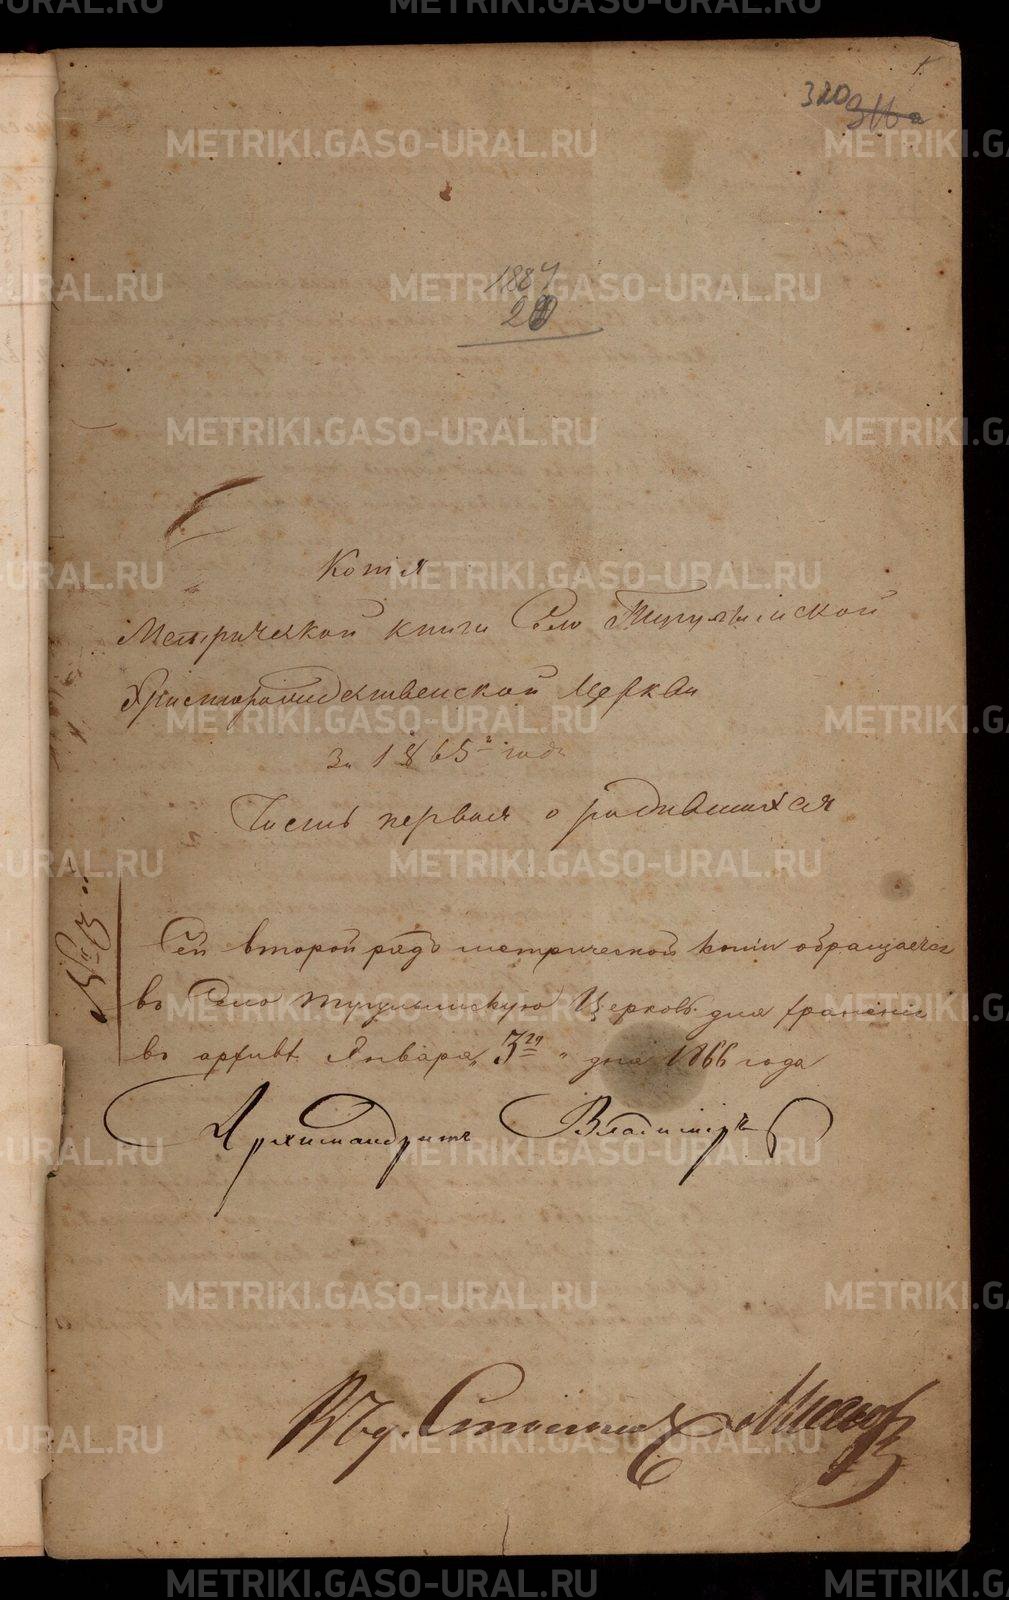 1.
320 311 а
1884
20
Копія
Метрической книги Село Тугулымской
Христорождественской Церкви
За 1865й годъ
Часть первая о родившихся
Сей второй рядъ метрической копіи обращается
въ Село Тугулымскую Церковь для храненія
въ архивѣ Января „3го„ дня 1866 года
Архимандритъ Владиміръ
METRIKI.GASO-URAL.RU